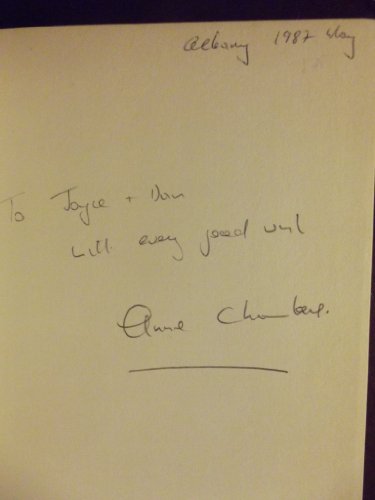 Albany 1987 May
To Joyce + Dan
with every good wish
Anne Chambers.